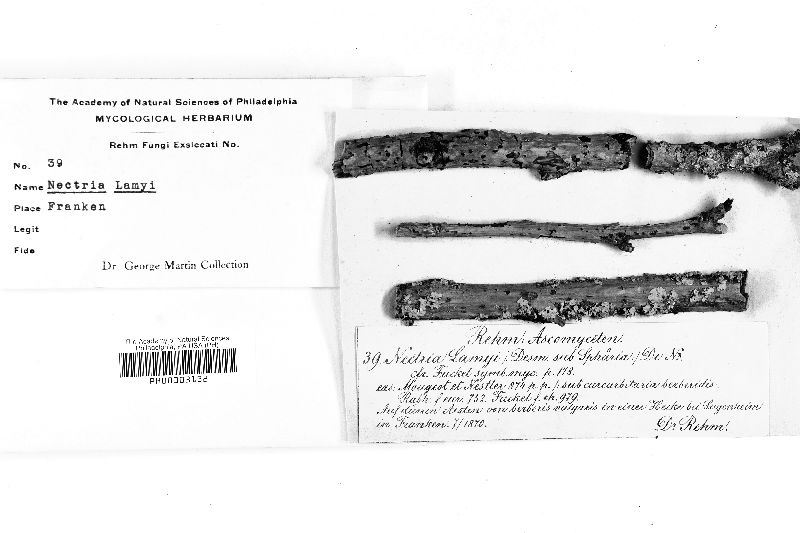 The Academy of Natural Sciences of Philadelphia
MYCOLOGICAL HERBARIUM
Rehm Fungi Exsiccati No.
No. 39
Name Nectria Lamyi
Place Franken
Legit
Fide
Dr. George Martin Collection
The Academy of Natural Sciences
Philadelphia, PA USA (PH)
Rehm: Ascomyceten.
39. Nectria Lamyi (Desm. sub Sphäria) De Ns
cfr. Fuckel symb. myc. p. 178.
exs. Mougeot et Nestler 874 p. p. sub cucurbitaria berberidis.
Rabh. f. eur. 752. Fuckel f. rh. 979.
Auf dürren Aesten von berberis vulgaris in einer Hecke bei Sugenheim
in Franken. 7/1870.
Dr Rehm.